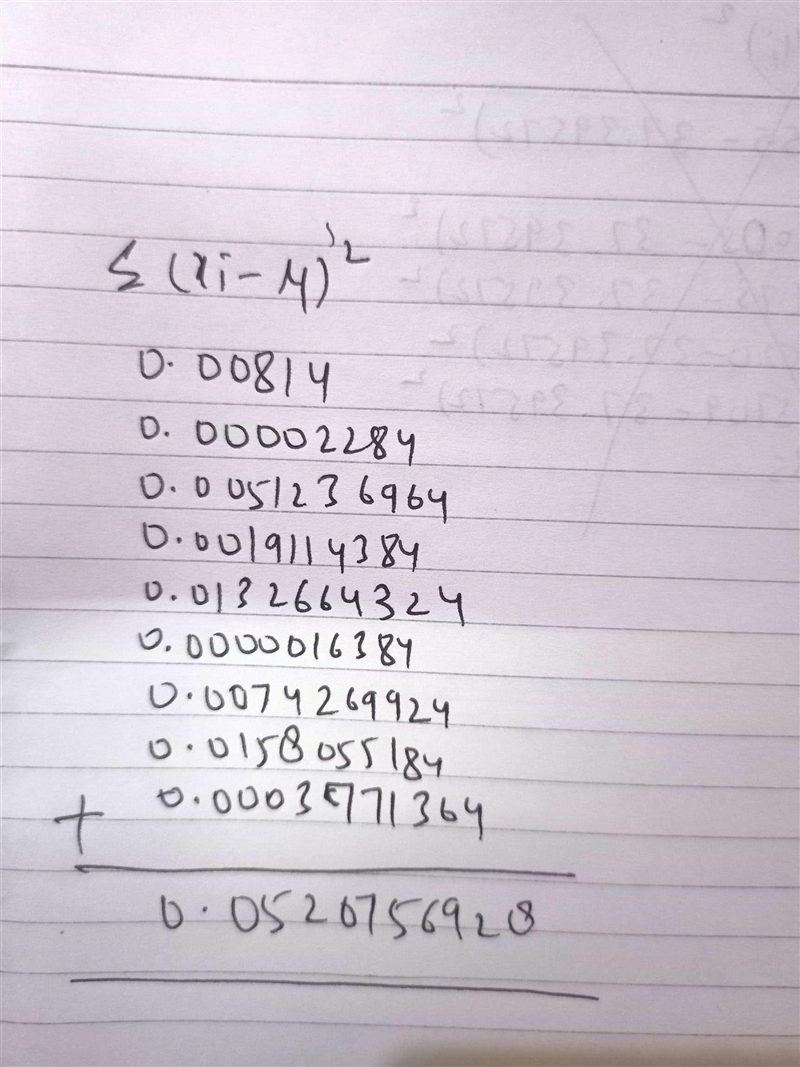 Σ(xi-μ)²
0.00814
0.00002284
0.0051236964
0.0019114384
0.0132664324
0.0000016384
0.0074269924
0.0158055184
+ 0.0003771364
0.0520756928